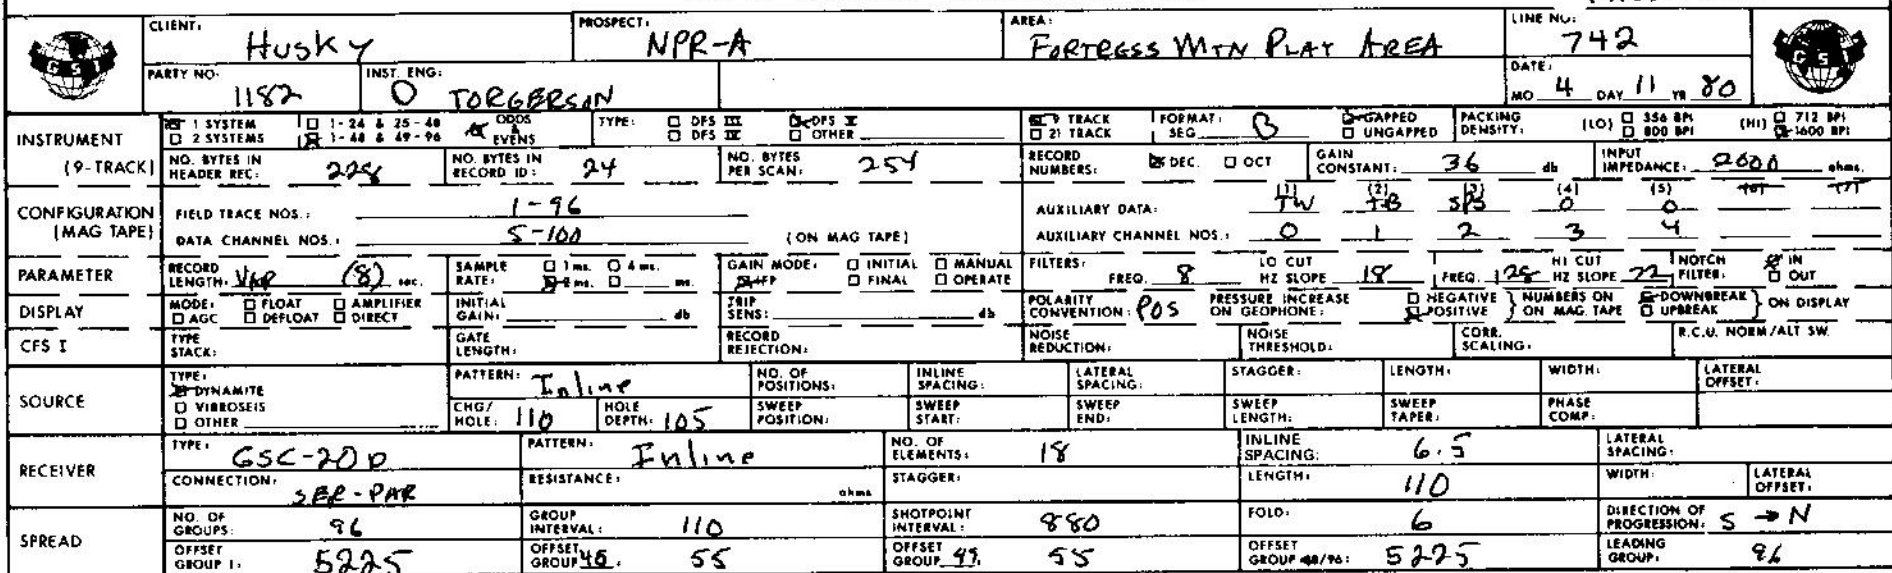 CLIENT: Husky PROSPECT: NPR-A AREA: FORTRESS MTN PLAY AREA LINE NO: 742
GSI GSI
PARTY NO: 1182 INST. ENG: O TORGERSON DATE: MO 4 DAY 11 YR 80
INSTRUMENT 1 SYSTEM 1-24 & 25-48 ODDS & EVENS TYPE: DFS III DFS V 9 TRACK FORMAT: SEG B GAPPED PACKING DENSITY: (LO) 356 BPI (HI) 712 BPI
2 SYSTEMS 1-48 & 49-96 DFS IV OTHER 21 TRACK UNGAPPED 800 BPI 1600 BPI
(9-TRACK) NO. BYTES IN HEADER REC: 228 NO. BYTES IN RECORD ID: 24 NO. BYTES PER SCAN: 254 RECORD NUMBERS: DEC. OCT GAIN CONSTANT: 36 db INPUT IMPEDANCE: 2000 ohms.
CONFIGURATION (MAG TAPE) FIELD TRACE NOS.: 1-96 AUXILIARY DATA: (1) TW (2) TB (3) SPS (4) 0 (5) 0 (6) (7)
DATA CHANNEL NOS.: 5-100 (ON MAG TAPE) AUXILIARY CHANNEL NOS.: 0 1 2 3 4
PARAMETER RECORD LENGTH: VAR (8) sec. SAMPLE RATE: 1 ms. 4 ms. 2 ms. ms. GAIN MODE: INITIAL MANUAL IFP FINAL OPERATE FILTERS: LO CUT FREQ. 8 HZ SLOPE 18 HI CUT FREQ. 128 HZ SLOPE 72 NOTCH FILTER: IN OUT
DISPLAY MODE: FLOAT AMPLIFIER AGC DEFLOAT DIRECT INITIAL GAIN: db TRIP SENS: db POLARITY CONVENTION: POS PRESSURE INCREASE ON GEOPHONE: NEGATIVE POSITIVE } NUMBERS ON ON MAG. TAPE DOWNBREAK UPBREAK } ON DISPLAY
CFS I TYPE STACK: GATE LENGTH: RECORD REJECTION: NOISE REDUCTION: NOISE THRESHOLD: CORR. SCALING: R.C.U. NORM/ALT SW.
SOURCE TYPE: DYNAMITE VIBROSEIS OTHER PATTERN: Inline NO. OF POSITIONS: INLINE SPACING: LATERAL SPACING: STAGGER: LENGTH: WIDTH: LATERAL OFFSET:
CHG/HOLE: 110 HOLE DEPTH: 105 SWEEP POSITION: SWEEP START: SWEEP END: SWEEP LENGTH: SWEEP TAPER: PHASE COMP:
RECEIVER TYPE: GSC-20D PATTERN: Inline NO. OF ELEMENTS: 18 INLINE SPACING: 6.5 LATERAL SPACING:
CONNECTION: SER-PAR RESISTANCE: ohms STAGGER: LENGTH: 110 WIDTH: LATERAL OFFSET:
SPREAD NO. OF GROUPS: 96 GROUP INTERVAL: 110 SHOTPOINT INTERVAL: 880 FOLD: 6 DIRECTION OF PROGRESSION: S → N
OFFSET GROUP 1: 5225 OFFSET GROUP 48: 55 OFFSET GROUP 49: 55 OFFSET GROUP 48/96: 5225 LEADING GROUP: 96